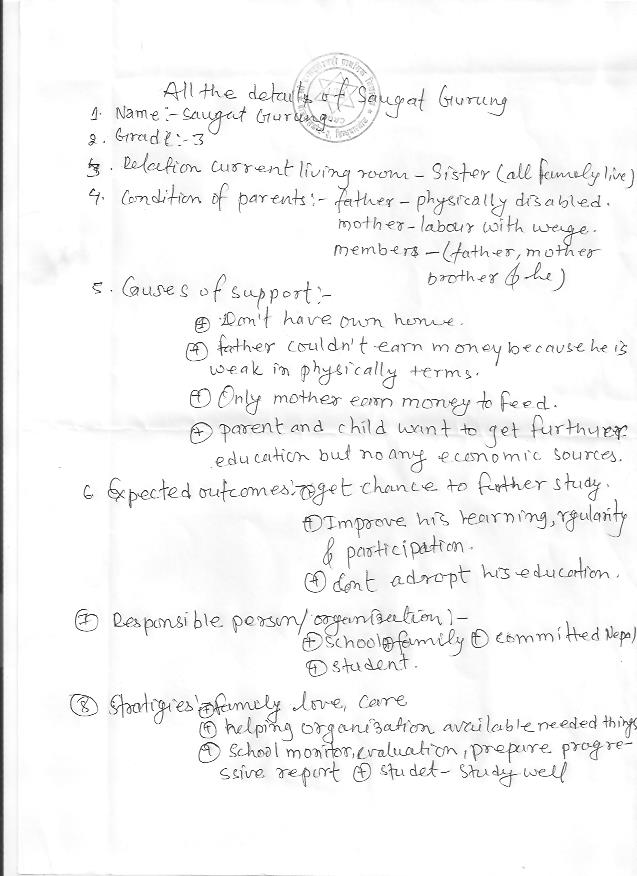 All the details of Saugat Gurung
1. Name:- Saugat Gurung
2. Grade:-3
3. Relation current living room - Sister (all famely live)
4. Condition of parents:- father - physically disabled.
mother-labour with wage.
members - (father, mother
brother & he)
5. Causes of support:-
⊕ Don't have own home.
⊕ father couldn't earn money because he is
weak in physically terms.
⊕ Only mother earn money to feed.
⊕ parent and child want to get furthurer
education but no any economic sources.
6 Expected outcomes:-⊕get chance to further study.
⊕ Improve his learning, rgularity
& participation.
⊕ dont adropt his education.
⑦ Responsible person/organization:-
⊕school ⊕family ⊕ committed Nepal
⊕ student.
⑧ Stratigies:-⊕famely love, care
⊕ helping organization available needed things
⊕ School monitor, evaluation, prepare progre-
ssive report ⊕ studet - study well